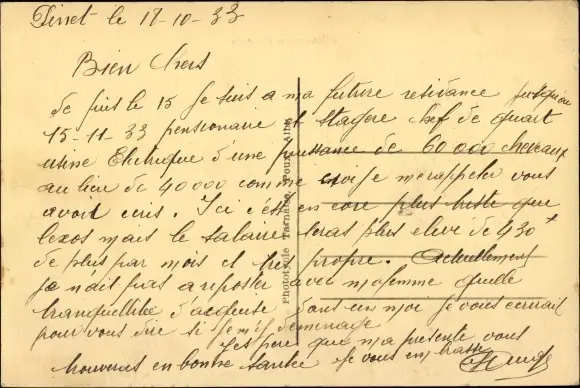 Pinet le 18-10-33
Bien chers
de puis le 15 Je suis a ma future residance jusqu'au
15-11-33 pensionaire et stagere chef de quart
usine Eletrique d'une puissance de 60000 chevaux
au lieu de 40000 comme je me rappeler vous
avoir ecris. Ici c'est en core plus triste que
lexos mais le salaire seras plus eleve de 430 f
de plus par mois et tres propre. Actuellement
je n'ait pas a reposter avec ma femme quelle
tranquillitée d'acquise dans un moi je vous ecrirait
pour vous dire si je m'y demenage
Jespere que ma presente vous
trouveras en bonne santée Je vous embrasse
Phototypie Tarnaise, Poux, Albi